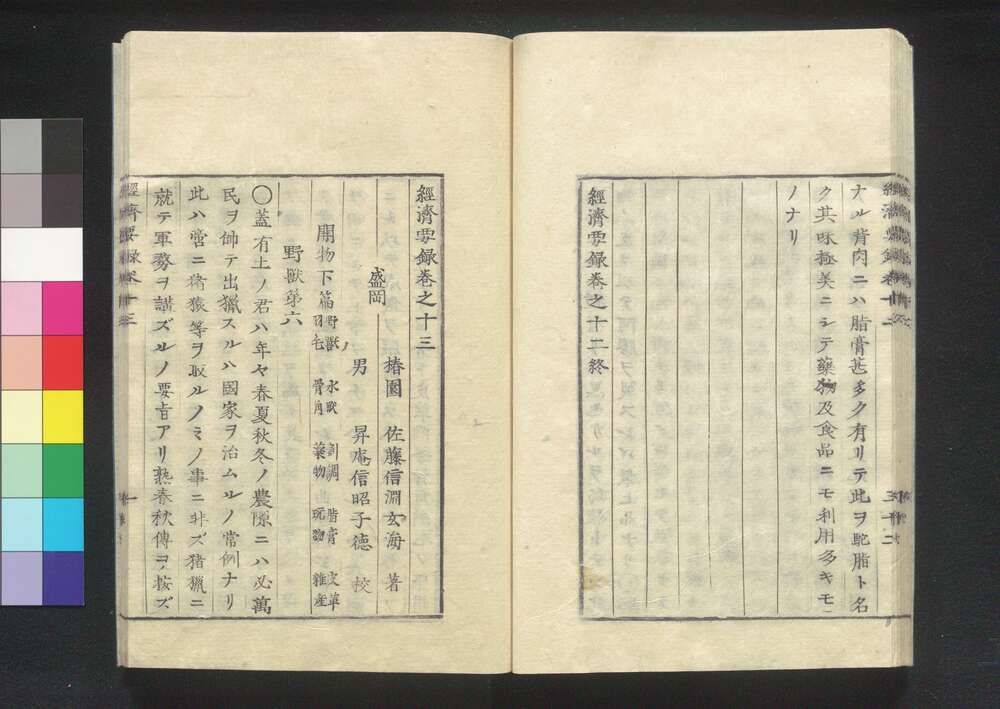 ナル背肉ニハ脂膏甚多ク有リテ此ヲ駝脂ト名
ク其味極美ニシテ藥物及食品ニモ利用多キモ
ノナリ
經濟要錄卷之十二終
經濟要錄卷之十三
盛岡
椿園 佐藤信淵玄海 著
男 昇庵信昭子德 校
開物下篇 野獸 水獸 馴調 脂膏 皮革
羽毛 骨角 藥物 玩物 雜産
野獸第六
〇蓋有土ノ君ハ年々春夏秋冬ノ農隙ニハ必萬
民ヲ帥テ出獵スルハ國家ヲ治ムルノ常例ナリ
此ハ啻ニ猪猿等ヲ取ルノミノ事ニ非ズ猪獵ニ
就テ軍務ヲ講ズルノ要旨アリ熟春秋傳ヲ按ズ